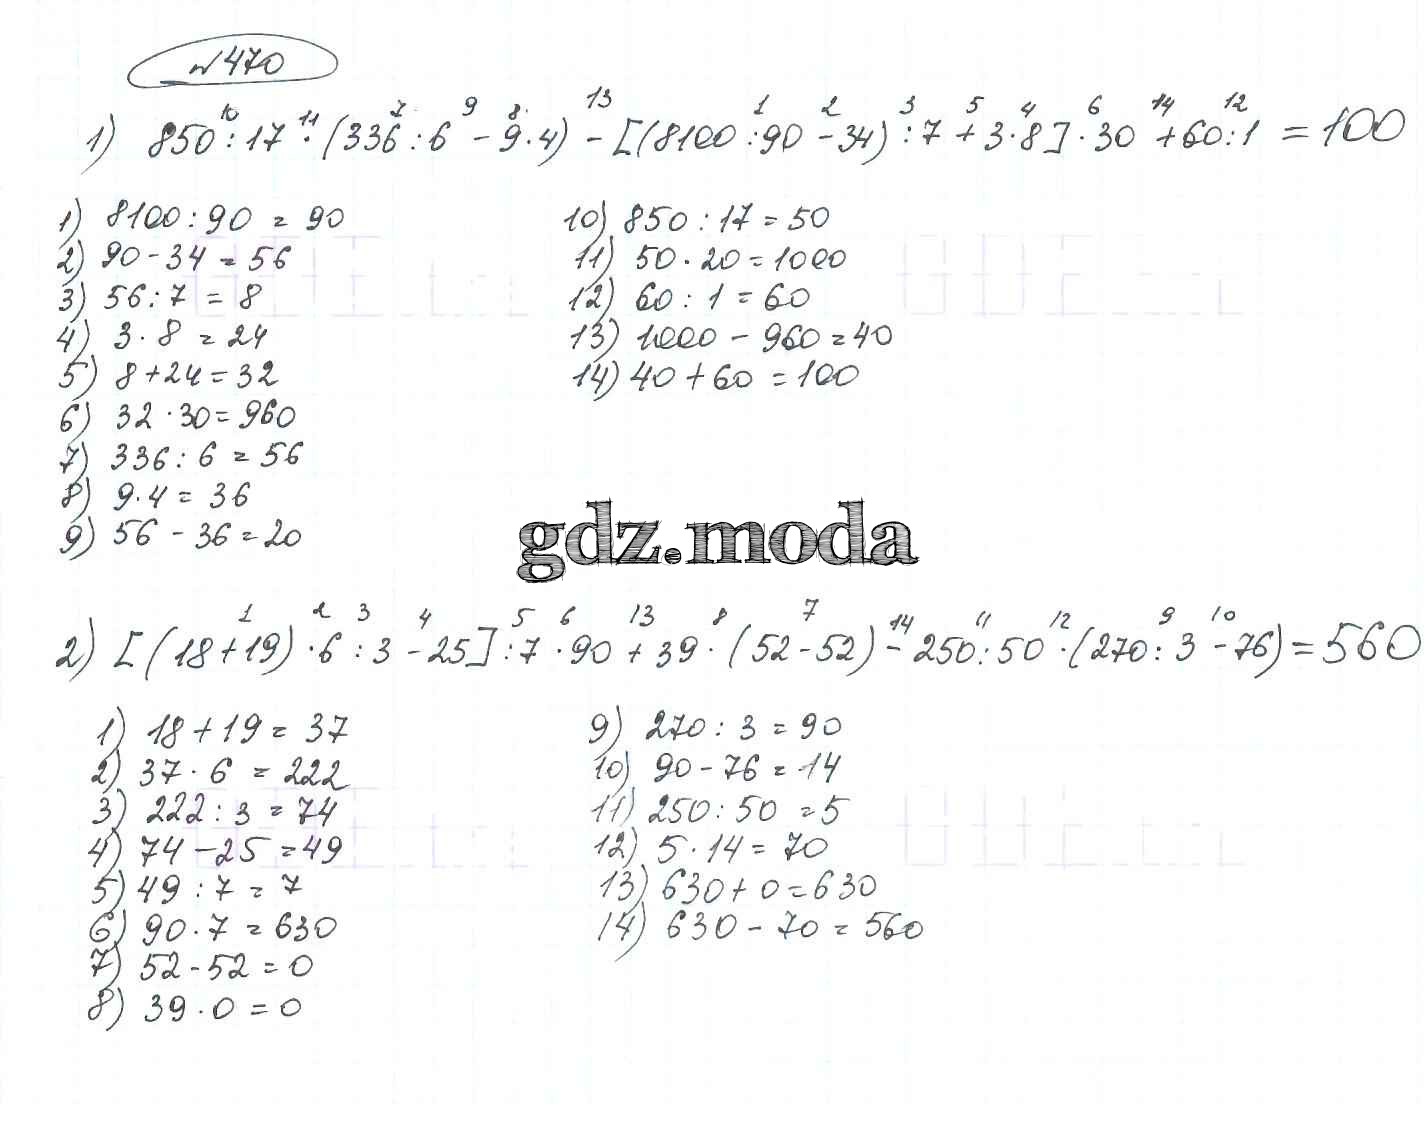 №470
10 11 7 9 8 13 1 2 3 5 4 6 14 12
1) 850:17·(336:6-9·4)-[(8100:90-34):7+3·8]·30+60:1=100
1) 8100:90=90
2) 90-34=56
3) 56:7=8
4) 3·8=24
5) 8+24=32
6) 32·30=960
7) 336:6=56
8) 9·4=36
9) 56-36=20
10) 850:17=50
11) 50·20=1000
12) 60:1=60
13) 1000-960=40
14) 40+60=100
gdz.moda
1 2 3 4 5 6 13 8 7 14 11 12 9 10
2) [(18+19)·6:3-25]:7·90+39·(52-52)-250:50·(270:3-76)=560
1) 18+19=37
2) 37·6=222
3) 222:3=74
4) 74-25=49
5) 49:7=7
6) 90·7=630
7) 52-52=0
8) 39·0=0
9) 270:3=90
10) 90-76=14
11) 250:50=5
12) 5·14=70
13) 630+0=630
14) 630-70=560